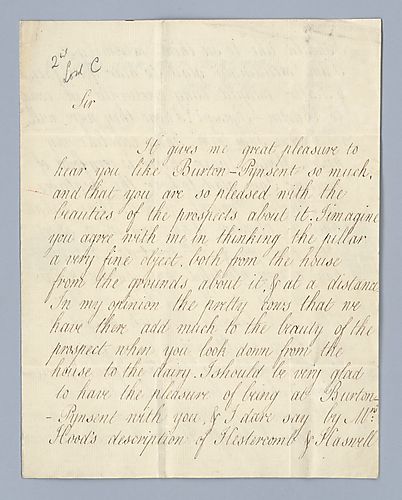 2d
Lord C
Sir
It gives me great pleasure to
hear you like Burton-Pynsent so much,
and that you are so pleased with the
beauties of the prospects about it. I imagine
you agree with me in thinking the pillar
a very fine object, both from the house
from the grounds about it, & at a distance
In my opinion the pretty cows that we
have there add much to the beauty of the
prospect when you look down from the
house to the dairy. I should be very glad
to have the pleasure of being at Burton-
-Pynsent with you, & I dare say by Mrs
Hood's description of Hestercomb & Haswell